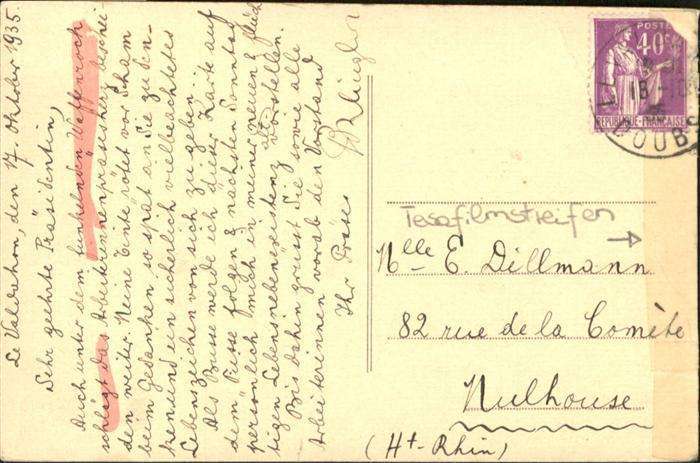 Le Valdahon, den 17. Oktober 1935.
Sehr geehrte Präsidentin,
Auch unter dem funkelnden Waffenrock
schlägt das Arbeiterinnenpräsesherz beschei-
den weiter. Meine Tinte rötet vor Scham
beim Gedanken so spät an Sie zu den-
ken und ein sicherlich vielbeachtetes
Lebenszeichen von sich zu geben.
Als Busse werde ich dieser Karte auf
dem Fusse folgen & nächsten Sonntag
persönlich mich in meiner neuen & flüch-
tigen Lebensnebenexistenz vorstellen.
Bis dahin grüsst Sie sowie alle
Arbeiterinnen vorab den Vorstand
Ihr Präses
POSTES
40c
RÉPUBLIQUE-FRANÇAISE
18
DOUBS
Tesafilmstreifen
→
Mlle E. Dillmann
82 rue de la Comète
Mulhouse
(Ht-Rhin)